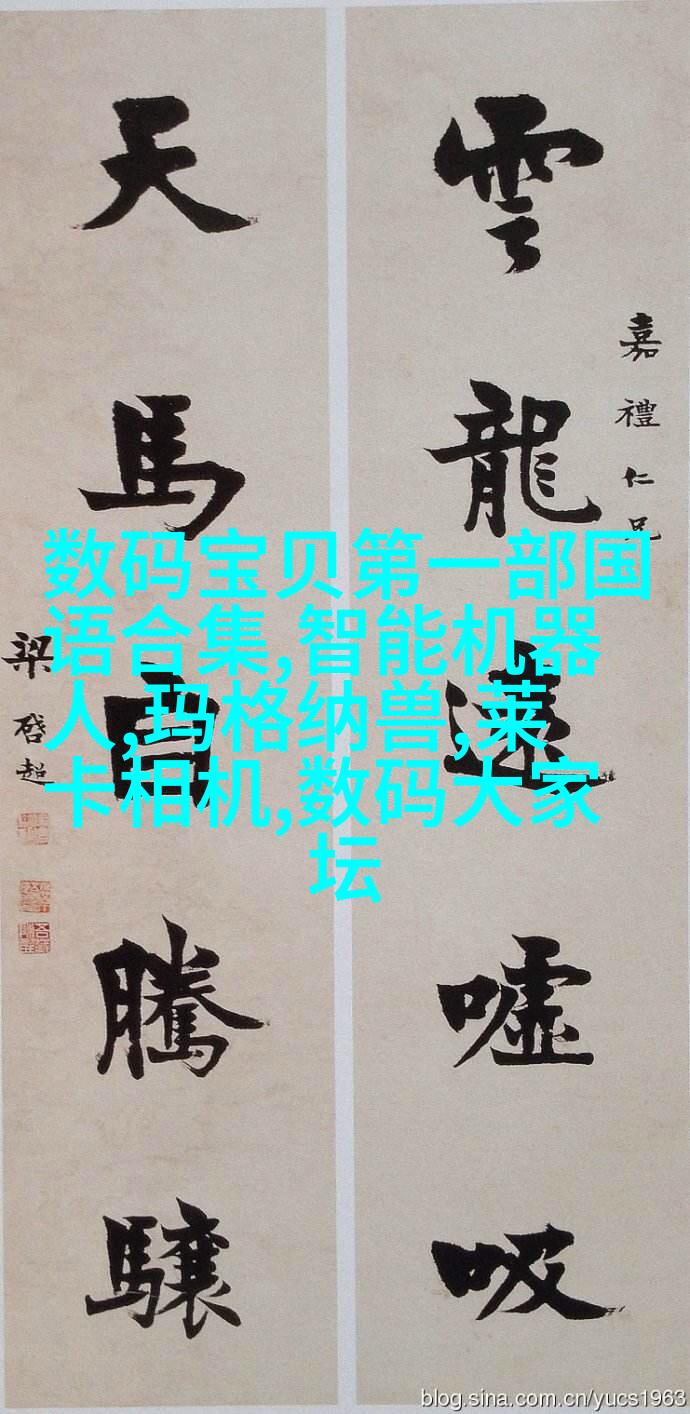 雲龍遠噓吸
嘉禮仁兄
天馬自騰驤
梁啓超
数码宝贝第一部国
语合集,智能机器
人,玛格纳兽,莱
卡相机,数码大家
坛
blog.sina.com.cn/yucs1963